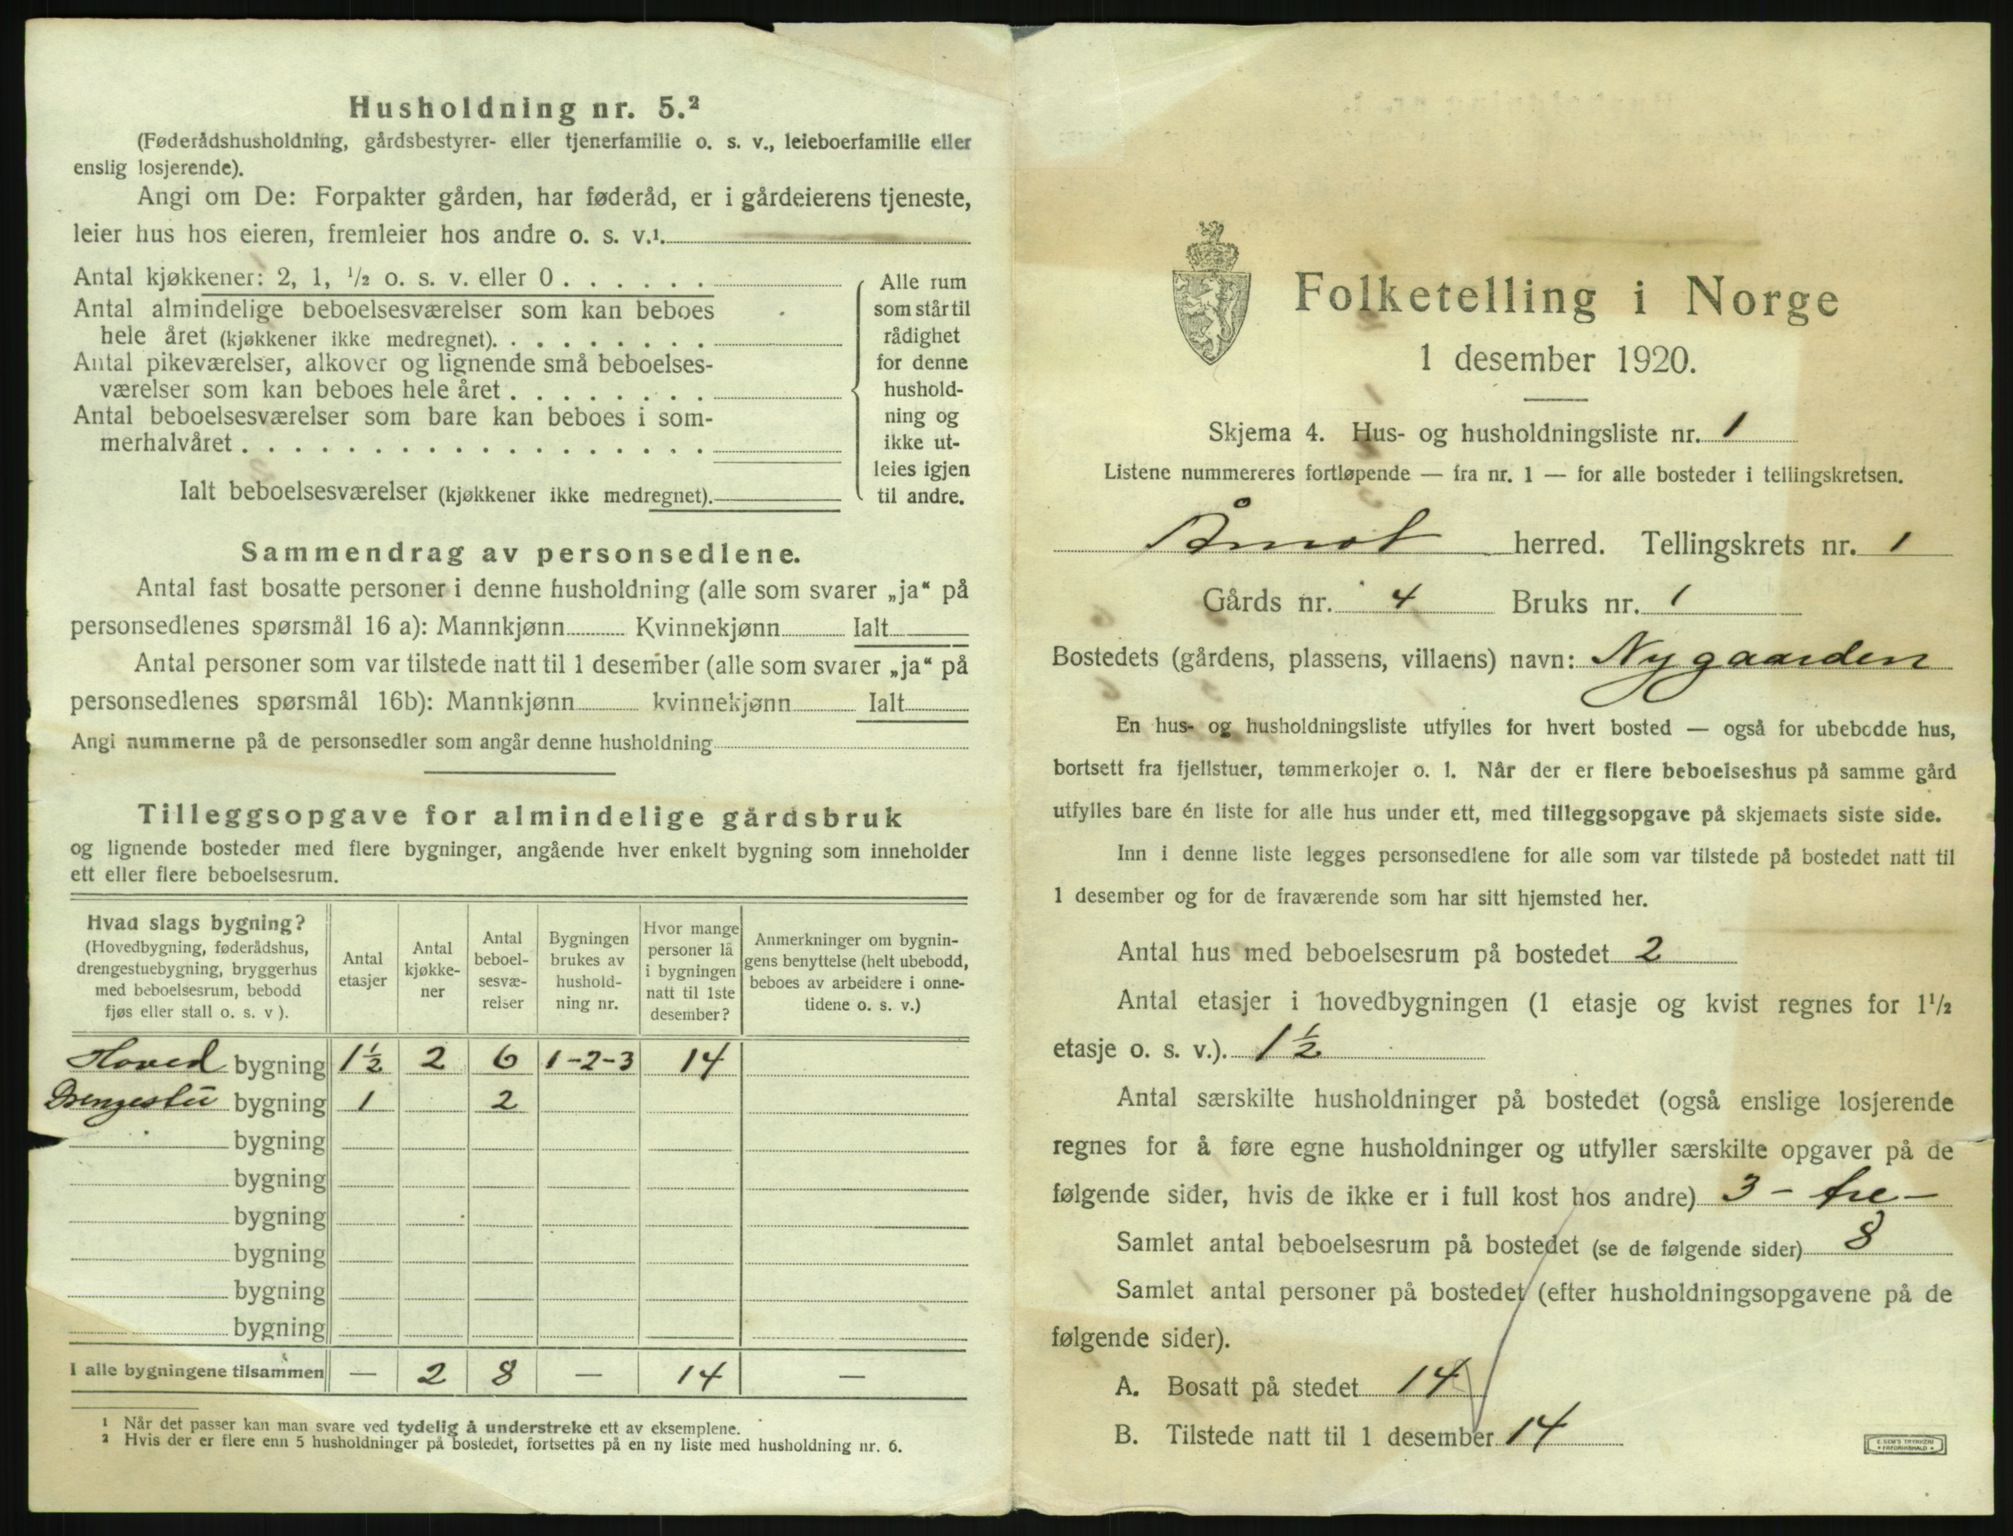 Husholdning nr. 5.²
(Føderådshusholdning, gårdsbestyrer- eller tjenerfamilie o. s. v., leieboerfamilie eller
enslig losjerende).
Angi om De: Forpakter gården, har føderåd, er i gårdeierens tjeneste,
leier hus hos eieren, fremleier hos andre o. s. v.¹
Antal kjøkkener: 2, 1, ½ o. s. v. eller 0
Antal almindelige beboelsesværelser som kan beboes
hele året (kjøkkener ikke medregnet)
Antal pikeværelser, alkover og lignende små beboelses-
værelser som kan beboes hele året
Antal beboelsesværelser som bare kan beboes i som-
merhalvåret
Ialt beboelsesværelser (kjøkkener ikke medregnet)
Alle rum
som står til
rådighet
for denne
hushold-
ning og
ikke ut-
leies igjen
til andre.
Sammendrag av personsedlene.
Antal fast bosatte personer i denne husholdning (alle som svarer „ja“ på
personsedlenes spørsmål 16 a): Mannkjønn Kvinnekjønn Ialt
Antal personer som var tilstede natt til 1 desember (alle som svarer „ja“ på
personsedlenes spørsmål 16b): Mannkjønn kvinnekjønn Ialt
Angi nummerne på de personsedler som angår denne husholdning
Tilleggsopgave for almindelige gårdsbruk
og lignende bosteder med flere bygninger, angående hver enkelt bygning som inneholder
ett eller flere beboelsesrum.
Hvad slags bygning?
(Hovedbygning, føderådshus,
drengestuebygning, bryggerhus
med beboelsesrum, bebodd
fjøs eller stall o. s. v).
Antal
etasjer
Antal
kjøkke-
ner
Antal
beboel-
sesvæ-
relser
Bygningen
brukes av
hushold-
ning nr.
Hvor mange
personer lå
i bygningen
natt til 1ste
desember?
Anmerkninger om bygnin-
gens benyttelse (helt ubebodd,
beboes av arbeidere i onne-
tidene o. s. v.)
Hoved bygning 1½ 2 6 1-2-3 14
Drengestu bygning 1 2
bygning
bygning
bygning
bygning
bygning
bygning
I alle bygningene tilsammen — 2 8 — 14 —
¹ Når det passer kan man svare ved tydelig å understreke ett av eksemplene.
² Hvis der er flere enn 5 husholdninger på bostedet, fortsettes på en ny liste med husholdning nr. 6.
Folketelling i Norge
1 desember 1920.
Skjema 4. Hus- og husholdningsliste nr. 1
Listene nummereres fortløpende — fra nr. 1 — for alle bosteder i tellingskretsen.
Åmot herred. Tellingskrets nr. 1
Gårds nr. 4 Bruks nr. 1
Bostedets (gårdens, plassens, villaens) navn: Nygaarden
En hus- og husholdningsliste utfylles for hvert bosted — også for ubebodde hus,
bortsett fra fjellstuer, tømmerkojer o. l. Når der er flere beboelseshus på samme gård
utfylles bare én liste for alle hus under ett, med tilleggsopgave på skjemaets siste side.
Inn i denne liste legges personsedlene for alle som var tilstede på bostedet natt til
1 desember og for de fraværende som har sitt hjemsted her.
Antal hus med beboelsesrum på bostedet 2
Antal etasjer i hovedbygningen (1 etasje og kvist regnes for 1½
etasje o. s. v.). 1½
Antal særskilte husholdninger på bostedet (også enslige losjerende
regnes for å føre egne husholdninger og utfyller særskilte opgaver på de
følgende sider, hvis de ikke er i full kost hos andre) 3 - tre -
Samlet antal beboelsesrum på bostedet (se de følgende sider) 8
Samlet antal personer på bostedet (efter husholdningsopgavene på de
følgende sider).
A. Bosatt på stedet 14
B. Tilstede natt til 1 desember 14
E. SEM'S TRYKKERI
FREDRIKSHALD